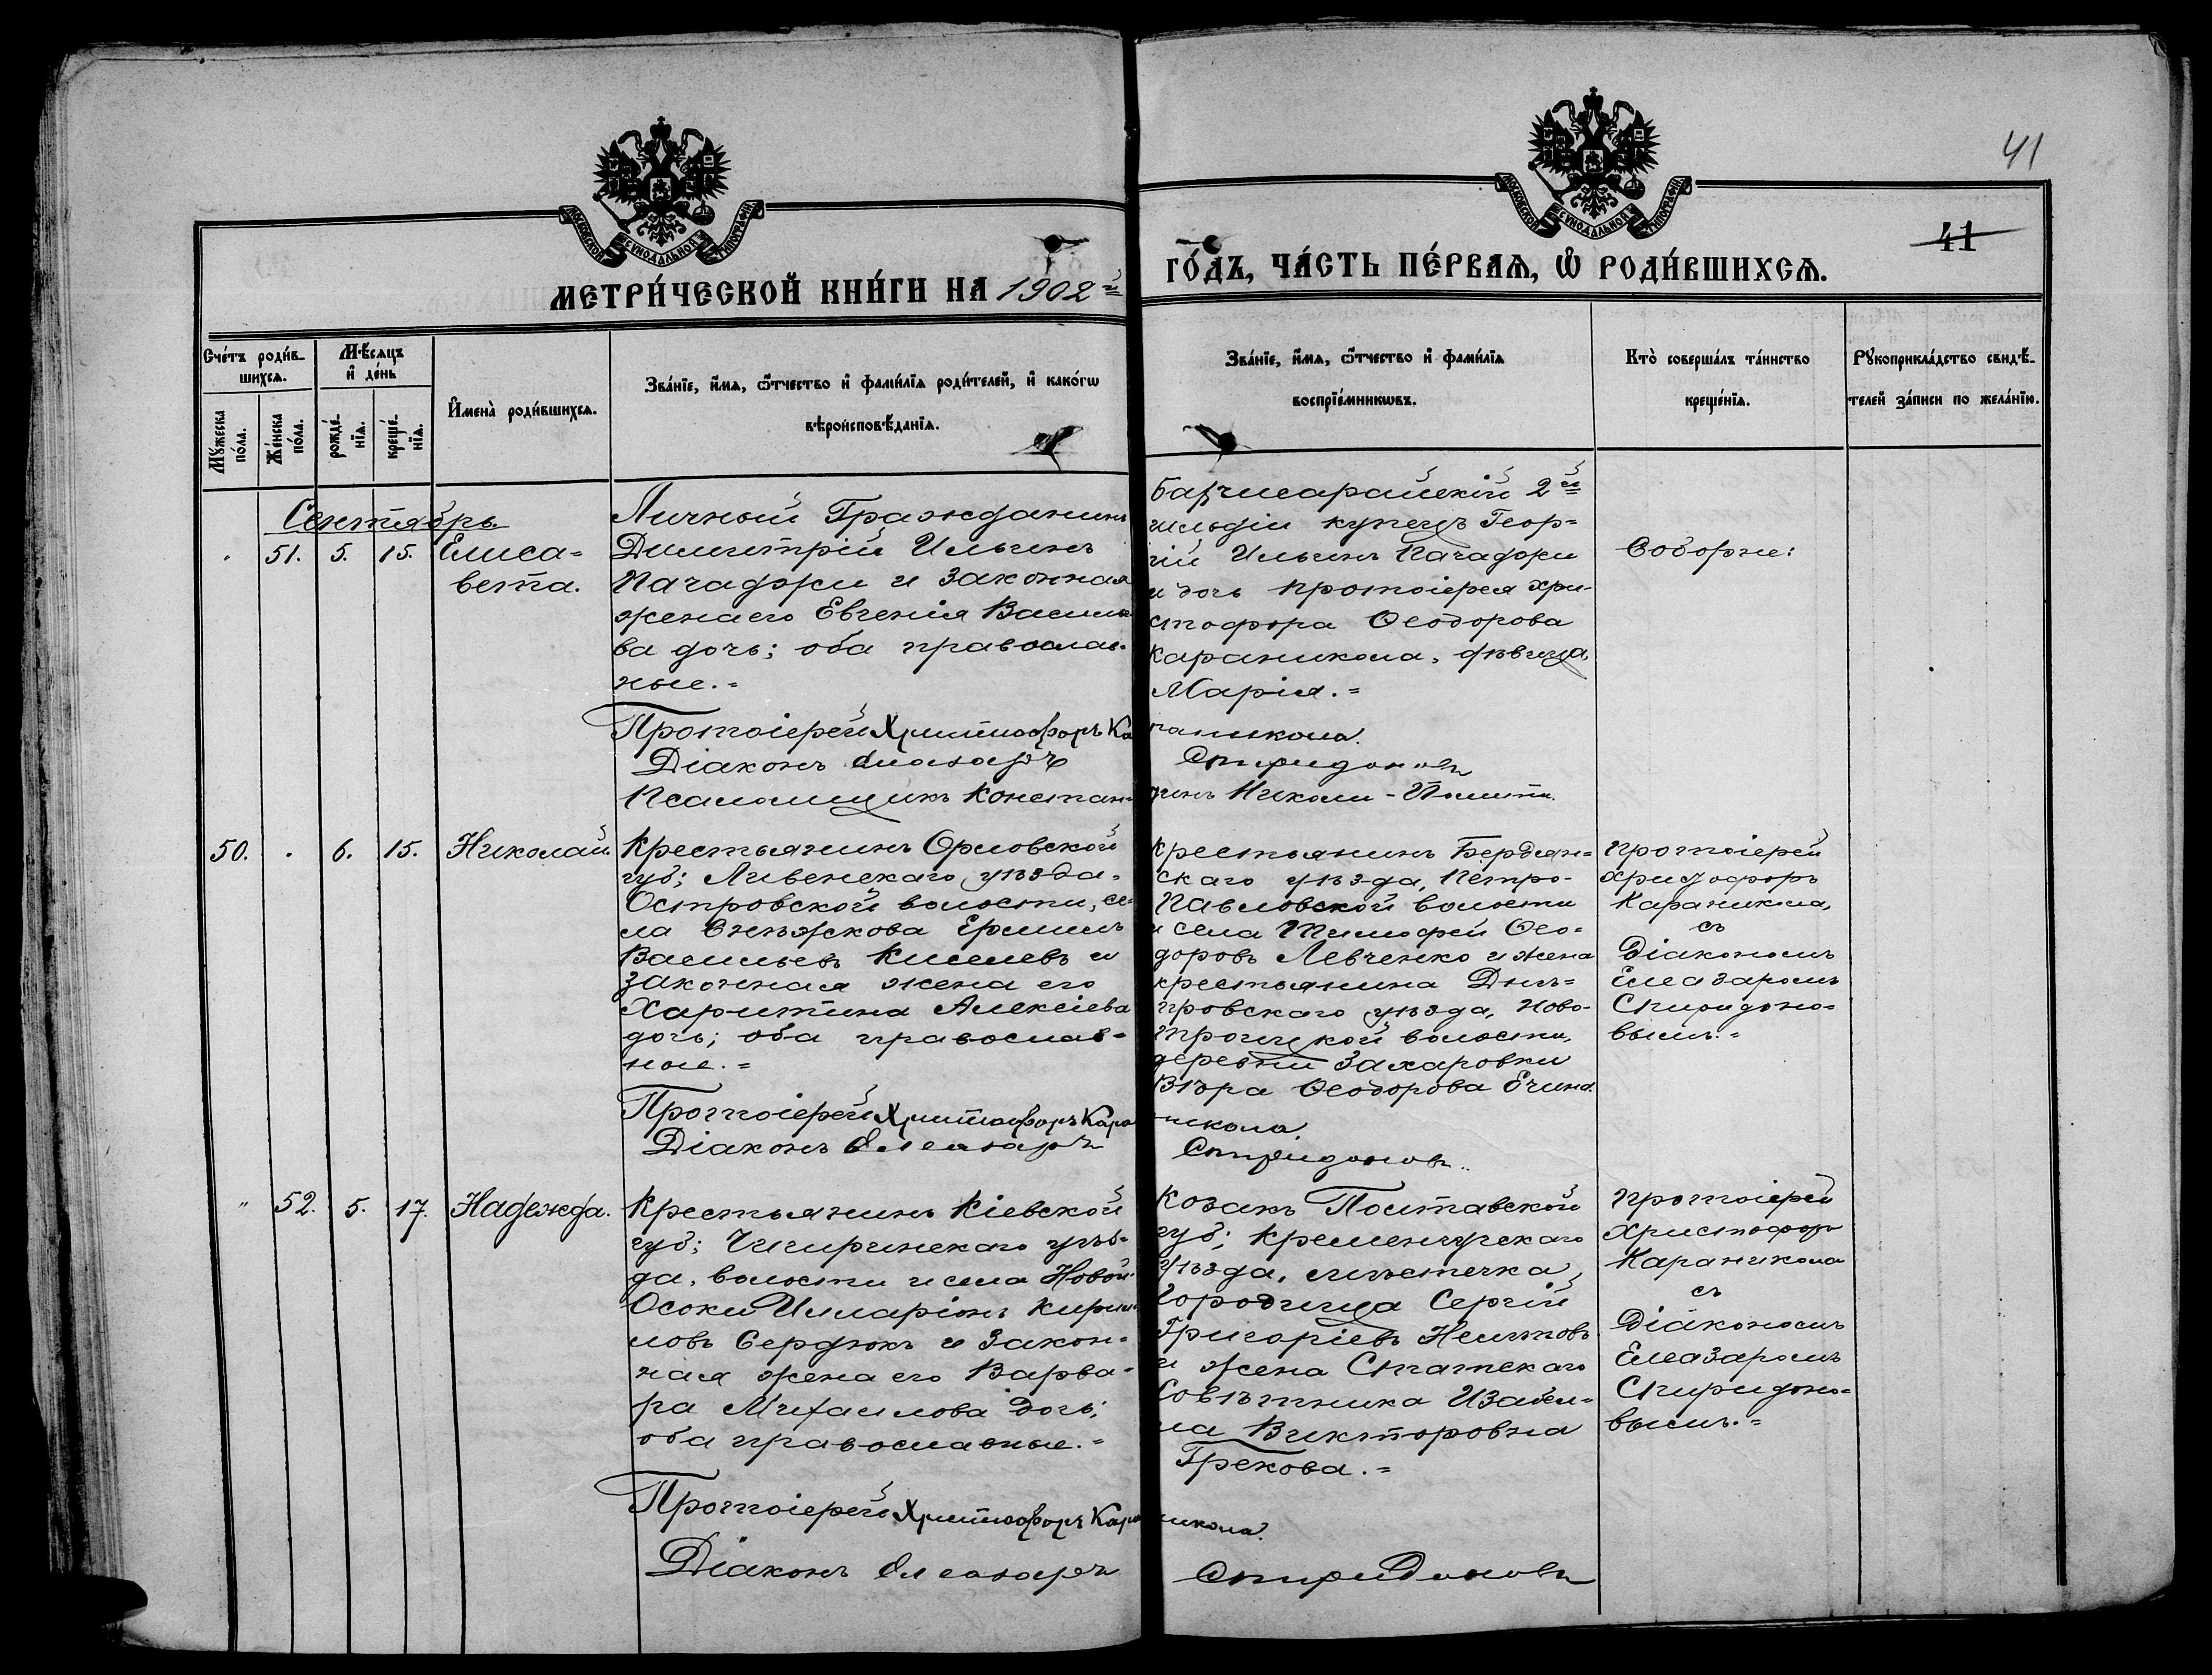 41
МОСКОВСКОЙ СѴНОДАЛЬНОЙ ТИПОГРАФІИ
МОСКОВСКОЙ СѴНОДАЛЬНОЙ ТИПОГРАФІИ
41
МЕТРИ́ЧЕСКОЙ КНИ́ГИ НА 1902й
ГО́ДЪ, ЧА́СТЬ ПЕ́РВАЯ, Ѽ РОДИ́ВШИХСЯ.
Сче́тъ роди́в-
шихся.
Мѣ́сяцъ
и де́нь
Мꙋжеска по́ла.
Же́нска по́ла.
рожде́-
нія.
креще́-
нія.
Имена̀ роди́вшихся.
Зва́ніе, и́мя, ѻ́тчество и фами́лія роди́телей, и како́гѡ
вѣроисповѣ́данія.
Зва́ніе, и́мя, ѻ́тчество и фами́лія
воспріе́мникѡвъ.
Кто̀ соверша́лъ та́инство
креще́нія.
Рꙋкоприкла́дство свидѣ́-
телей за́писи по жела́нію.
Сентябрь
51. 5. 15. Елиса-
вета.
Личный Гражданинъ
Димитрій Ильинъ
Пачаджи и законная
жена его Евгенія Василь-
ва дочь; оба православ-
ные.=
Бахчисарайскій 2й
гильдіи купецъ Геор-
гій Ильинъ Пачаджи
и дочь протоіерея Хри-
стофора Ѳеодорова
Караникола, дѣвица,
Марія.=
Соборне:
Протоіерей Христофоръ Караникола.
Діаконъ Елеазаръ Спиридоновъ
Псаломщикъ Константинъ Николи-
50. 6. 15. Николай.
Крестьянинъ Орловской
губ; Ливенскаго уѣзда.
Островской волости, се-
ла Ермилъ
Васильевъ Киселевъ и
законная жена его
Харитина Алексіева
дочь; оба православ-
ные.=
Крестьянинъ Бердян-
скаго уѣзда, Петро-
Павловской волости
и села Тимофей Ѳео-
доровъ Левченко и жена
крестьянина Днѣ-
провскаго уѣзда, Ново-
троицкой волости,
деревни Захаровки
Вѣра Ѳеодорова
Протоіерей
Христофоръ
Караникола,
съ
Діакономъ
Елеазаромъ
Спиридоно-
вымъ.=
Протоіерей Христофоръ Караникола.
Діаконъ Елеазаръ Спиридоновъ.
" 52. 5. 17. Надежда.
Крестьянинъ Кіевской
губ; Чигиринскаго уѣз-
да, волости и села Новой-
Осоки Илларіонъ Кирил-
ловъ Сердюкъ и закон-
ная жена его Варва-
ра Михаилова дочь;
оба православные.=
Козакъ Полтавской
губ; Кременчугскаго
уѣзда, мѣстечка,
Городища Сергій
Григоріевъ
и жена Статскаго
Совѣтника Изабел-
ла Викторовна
Грекова.=
Протоіерей
Христофоръ
Караникола
съ
Діакономъ
Елеазаромъ
Спиридоно-
вымъ.=
Протоіерей Христофоръ Караникола.
Діаконъ Елеазаръ Спиридоновъ